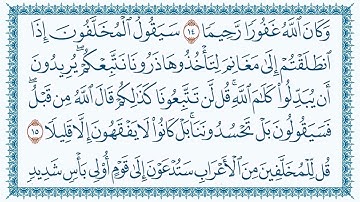 وَكَانَ ٱللَّهُ غَفُورًا رَّحِيمًا ١٤ سَيَقُولُ ٱلْمُخَلَّفُونَ إِذَا
ٱنطَلَقْتُمْ إِلَىٰ مَغَانِمَ لِتَأْخُذُوهَا ذَرُونَا نَتَّبِعْكُمْ ۖ يُرِيدُونَ
أَن يُبَدِّلُوا۟ كَلَٰمَ ٱللَّهِ ۚ قُل لَّن تَتَّبِعُونَا كَذَٰلِكُمْ قَالَ ٱللَّهُ مِن قَبْلُ ۖ
فَسَيَقُولُونَ بَلْ تَحْسُدُونَنَا ۚ بَلْ كَانُوا۟ لَا يَفْقَهُونَ إِلَّا قَلِيلًا ١٥
قُل لِّلْمُخَلَّفِينَ مِنَ ٱلْأَعْرَابِ سَتُدْعَوْنَ إِلَىٰ قَوْمٍ أُو۟لِى بَأْسٍ شَدِيدٍ